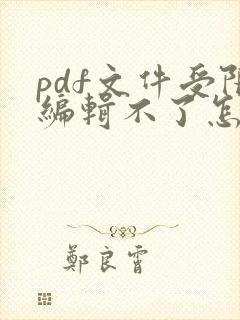 pdf文件受限
编辑不了怎
鄭良霄